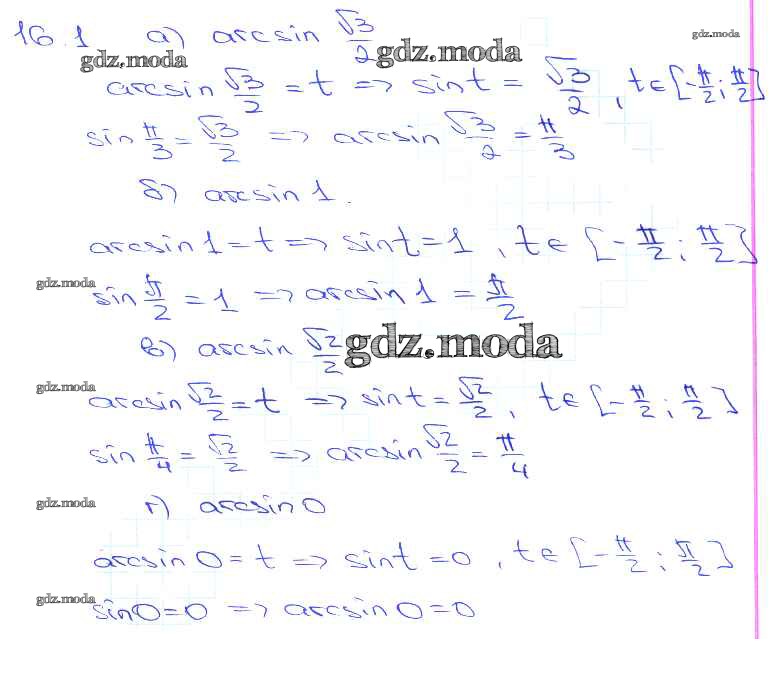 16.1 а) arcsin √3/2
gdz.moda gdz.moda gdz.moda
arcsin √3/2 = t => sin t = √3/2, t ∈ [-π/2; π/2]
sin π/3 = √3/2 => arcsin √3/2 = π/3
б) arcsin 1.
arcsin 1 = t => sin t = 1, t ∈ [-π/2; π/2]
gdz.moda
sin π/2 = 1 => arcsin 1 = π/2
в) arcsin √2/2
gdz.moda
gdz.moda
arcsin √2/2 = t => sin t = √2/2, t ∈ [-π/2; π/2]
sin π/4 = √2/2 => arcsin √2/2 = π/4
gdz.moda
г) arcsin 0
arcsin 0 = t => sin t = 0, t ∈ [-π/2; π/2]
gdz.moda
sin 0 = 0 => arcsin 0 = 0